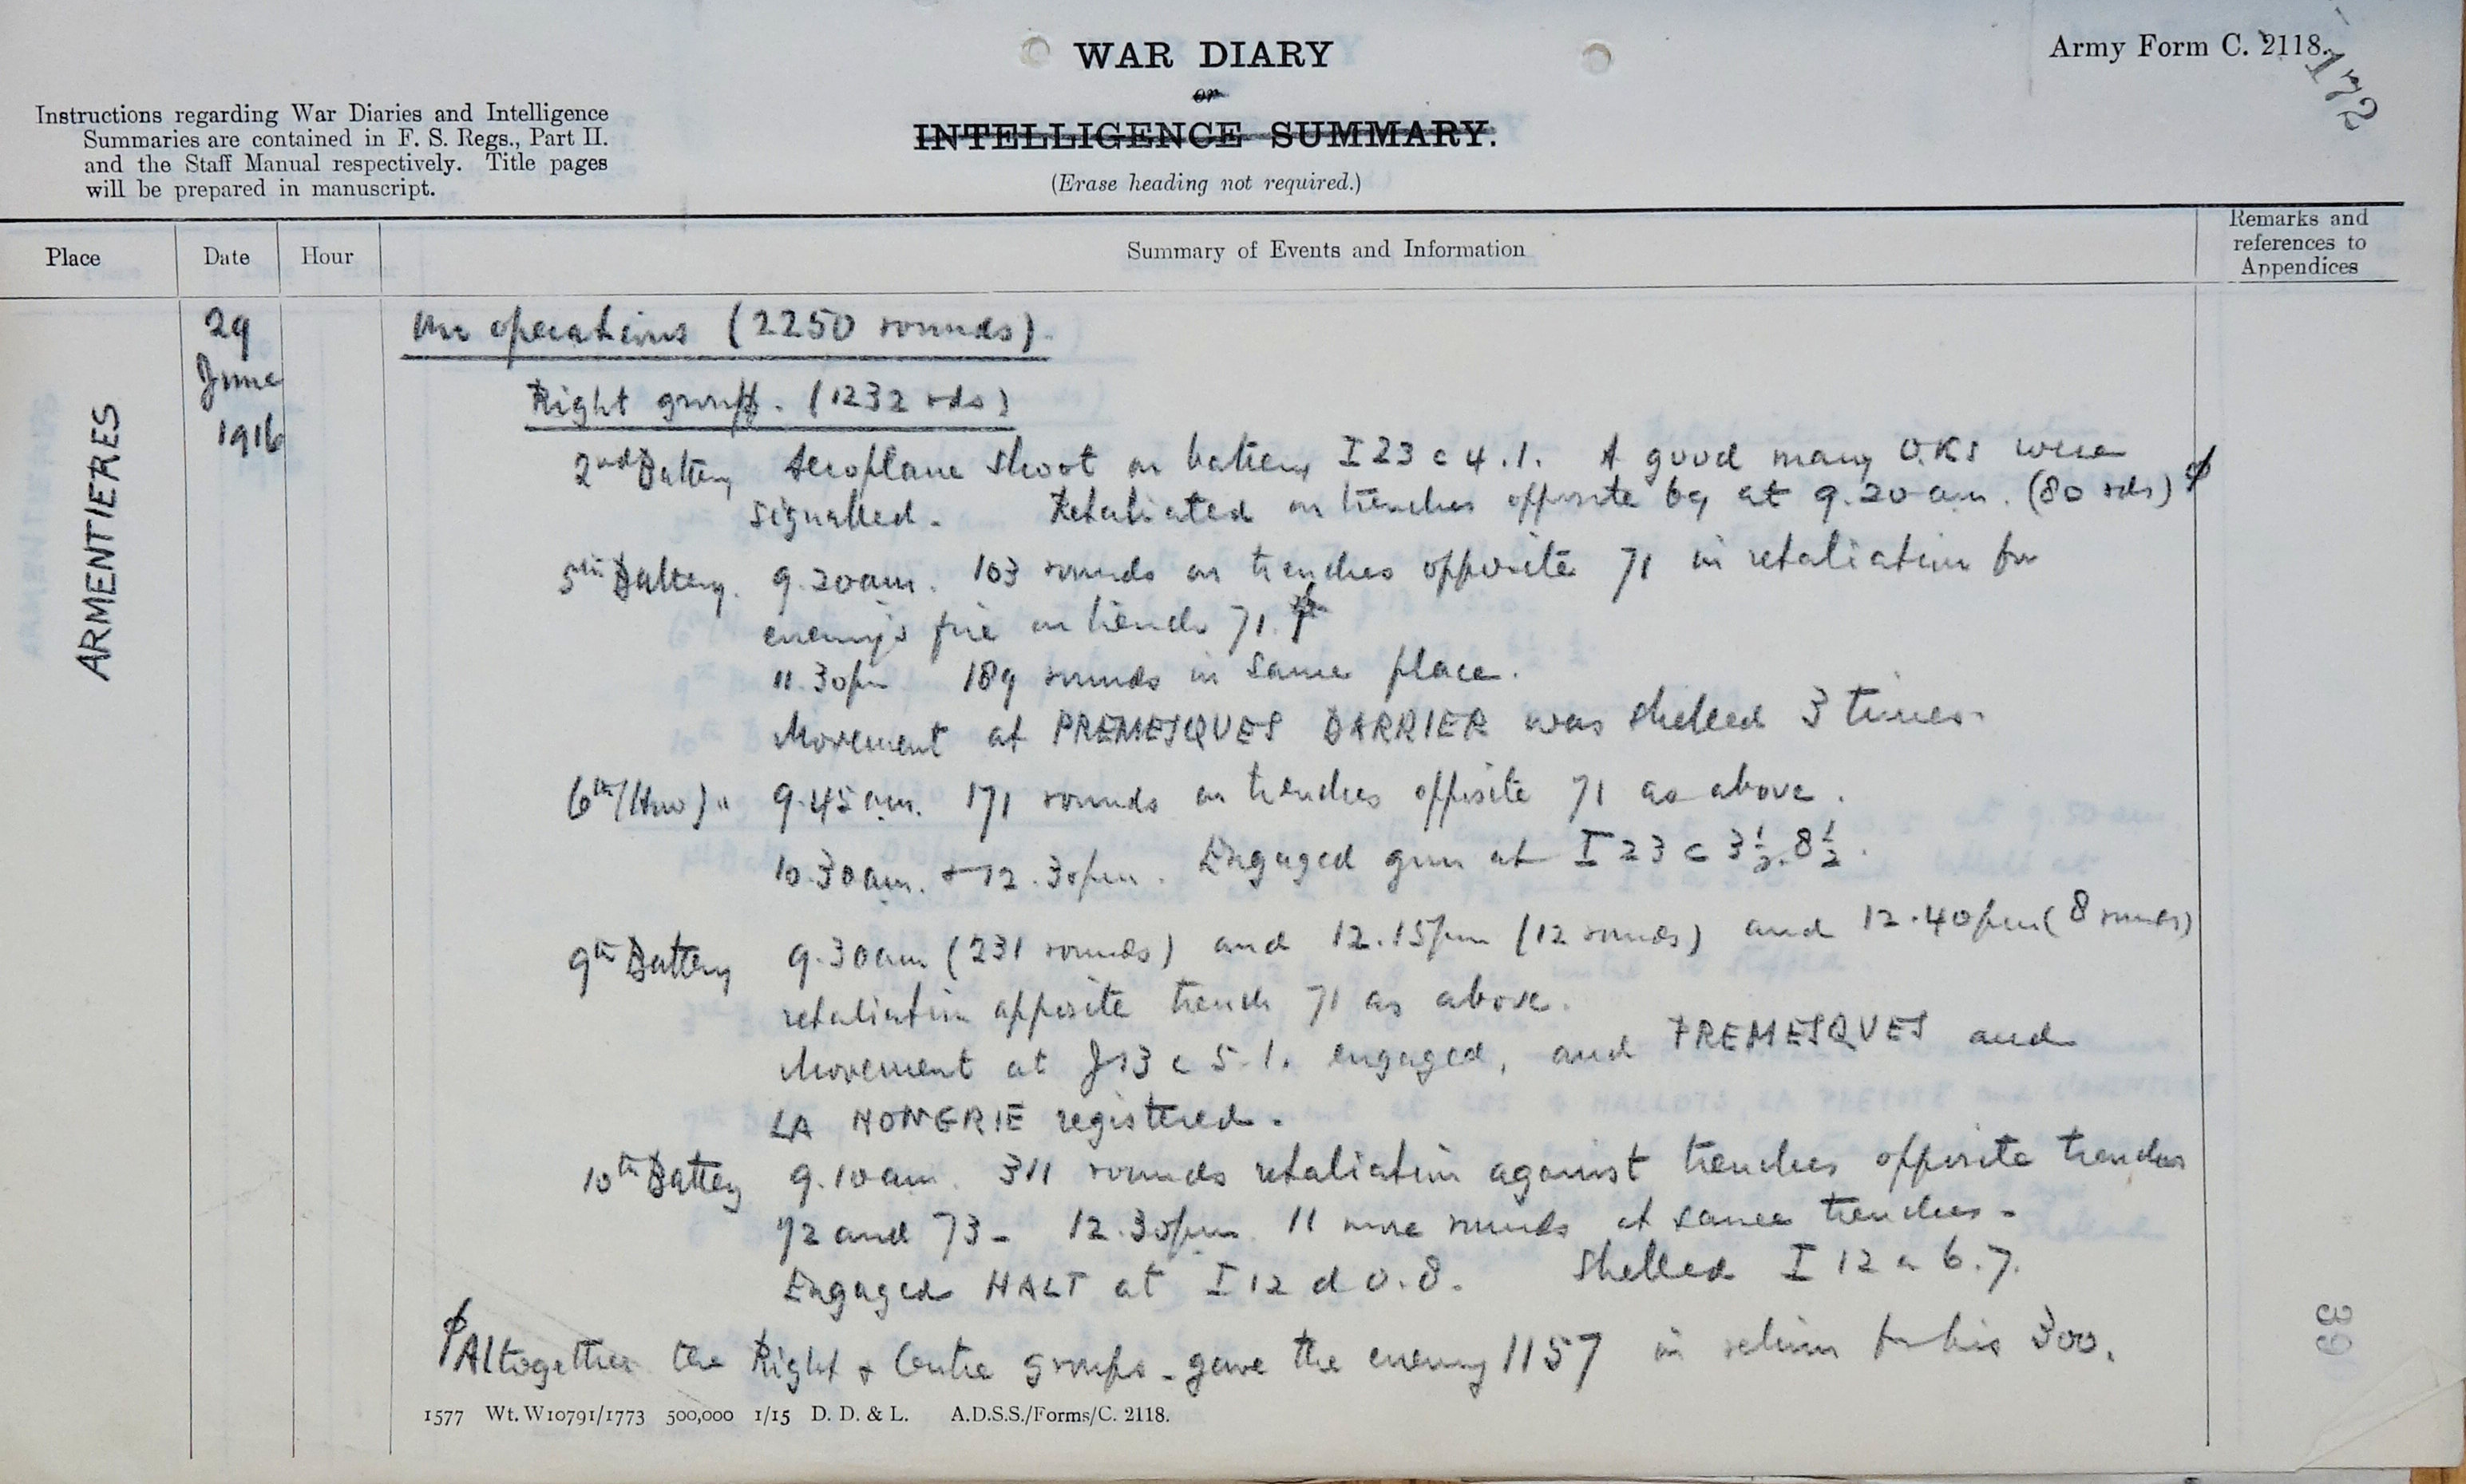 WAR DIARY
or
INTELLIGENCE SUMMARY.
(Erase heading not required.)
Army Form C. 2118.
172
Instructions regarding War Diaries and Intelligence
Summaries are contained in F. S. Regs., Part II.
and the Staff Manual respectively. Title pages
will be prepared in manuscript.
Place
Date
Hour
Summary of Events and Information
Remarks and
references to
Appendices
ARMENTIERES
29
June
1916
Our operations (2250 rounds).
Right group. (1232 rds)
2nd Battery Aeroplane shoot on battery I 23 c 4.1. A good many O.Ks were
signalled. Retaliated on trenches opposite 69 at 9.20 am. (80 rds) φ
5th Battery. 9.20am. 103 rounds on trenches opposite 71 in retaliation for
enemy's fire on trench 71. φ
11.30pm 189 rounds in same place.
Movement at PREMESQUES BARRIER was shelled 3 times.
6th (How) " 9.45am. 171 rounds on trenches opposite 71 as above.
10.30am. + 12.30pm. Engaged gun at I 23 c 3½.8½.
9th Battery 9.30am (231 rounds) and 12.15pm (12 rounds) and 12.40pm (8 rounds)
retaliation opposite trench 71 as above.
Movement at J13 c 5.1. engaged, and PREMESQUES and
LA HONGRIE registered.
10th Battery 9.10am. 311 rounds retaliation against trenches opposite trenches
72 and 73 - 12.30pm. 11 more rounds at same trenches.
Engaged HALT at I 12 d 0.8. Shelled I 12 a 6.7.
φ Altogether the Right + Centre groups - gave the enemy 1157 in return for his 300.
1577 Wt. W10791/1773 500,000 1/15 D. D. & L. A.D.S.S./Forms/C. 2118.
39